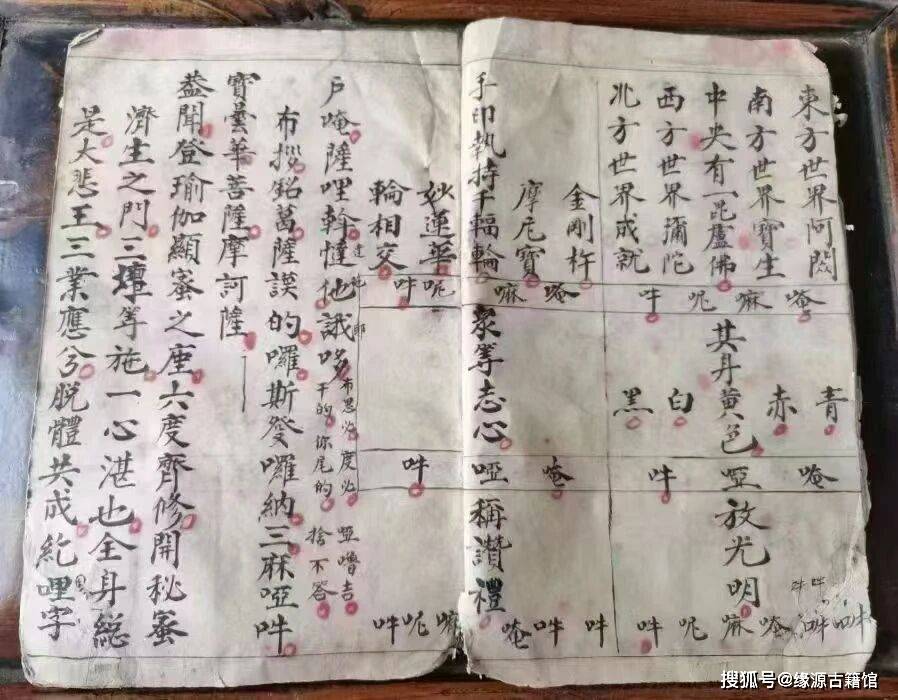 東方世界阿閦
南方世界寶生
中央有一毘盧佛
西方世界彌陀
北方世界成就
唵嘛呢吽
青
赤
其身黃色
白
黑
唵啞吽
放光明
吽吽
唵嘛呢吽
金剛杵
摩尼寶
手印執持千輻輪
妙蓮華
輪相交
唵嘛呢吽
眾等志心
唵啞吽
稱讚禮
吽吽唵嘛呢吽
户唵薩哩斡怛他誐哆
布思必度必
干的你尾的
啞嚕吉
捨不答
布捴銘葛薩謨的囉斯癹囉納三麻啞吽
寶曇華菩薩摩訶薩
葢聞登瑜伽顯蜜之座六度齊修開秘蜜
濟生之門三壇等施一心湛也全身総
是大悲王三業應兮脫體共成紇哩字
搜狐号@缘源古籍馆